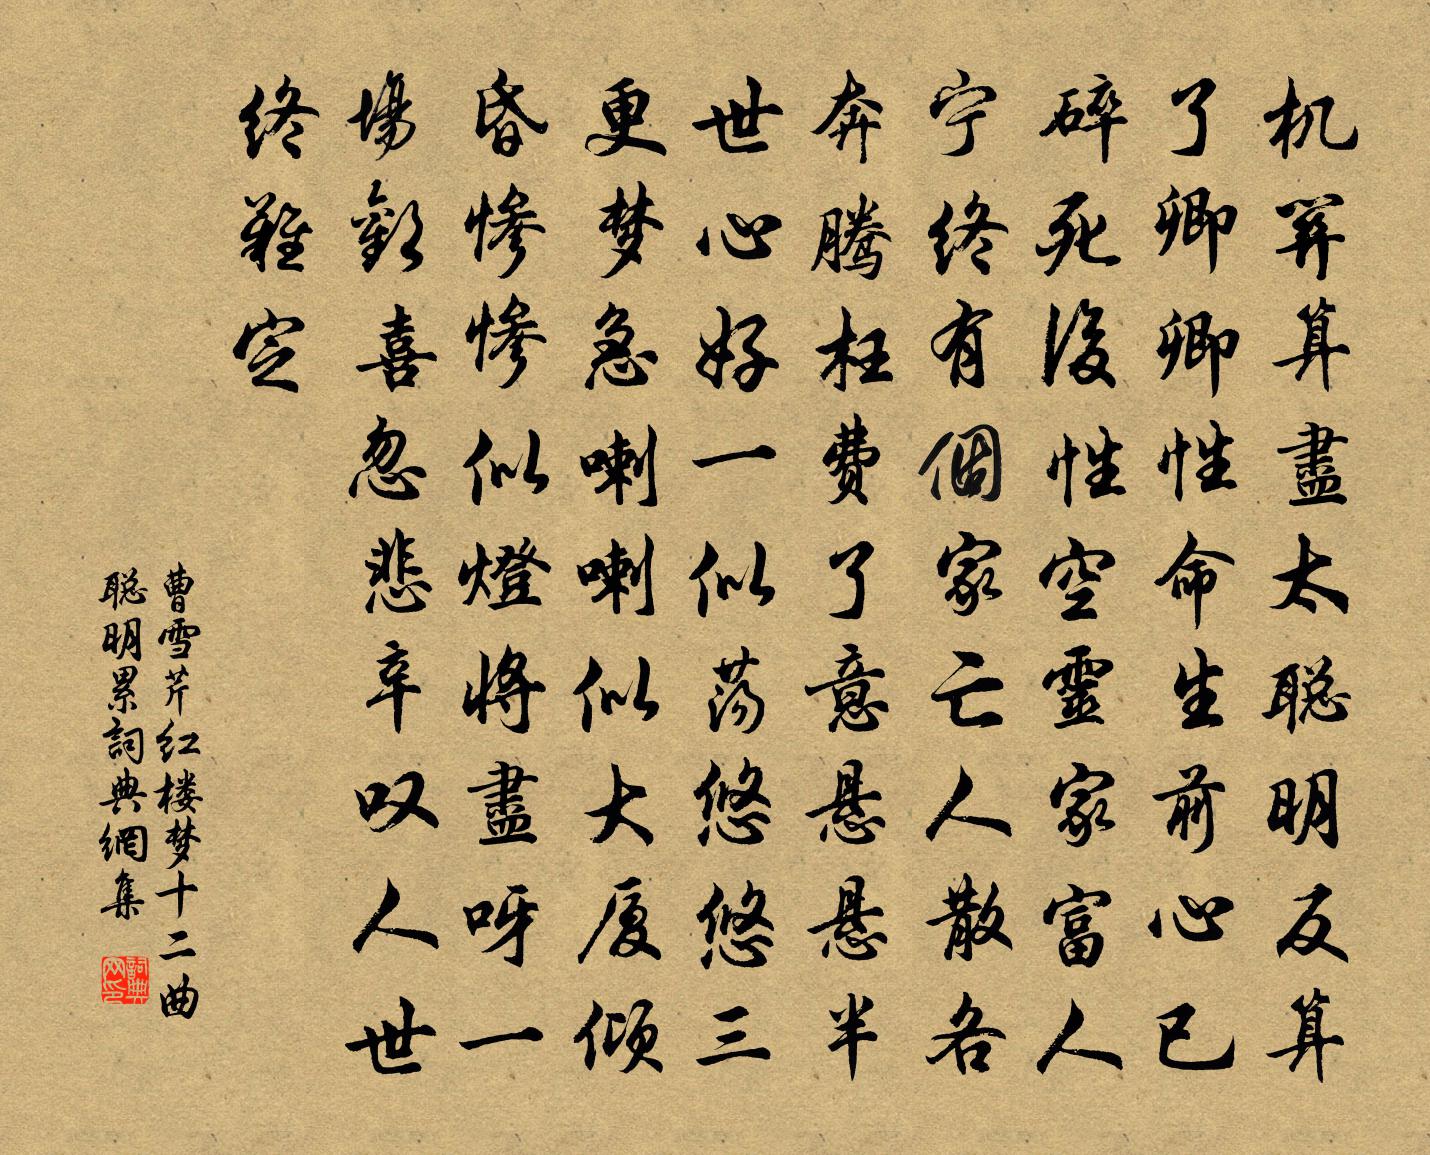 机關算盡太聪明反算
了卿卿性命生前心已
碎死後性空靈家富人
宁终有個家亡人散各
奔騰枉費了意悬悬半
世心好一似荡悠悠三
更梦急喇喇似大厦倾
昏惨惨似燈将盡呀一
場歡喜忽悲辛叹人世
终難定
曹雪芹红楼梦十二曲
聪明累詞典網集
詞典
网印